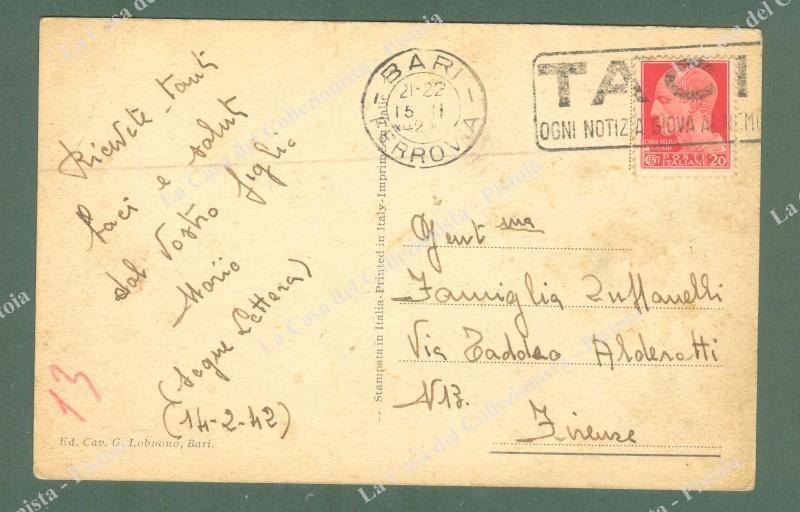 Ricevete tanti
baci e saluti
dal vostro figlio
Mario
(segue Lettera)
(14-2-42)
13
Ed. Cav. G. Lobuono, Bari.
— Stampata in Italia-Printed in Italy-Imprimé en Italie
BARI
21-22
15 II
42
FERROVIA
TACI
OGNI NOTIZIA GIOVA AL NEMI
CENT POSTE ITALIANE 20
Gent ma
Famiglia Zuffanelli
Via Taddeo Alderotti
N 13.
Firenze
La Casa del Collezionista - Pistoia